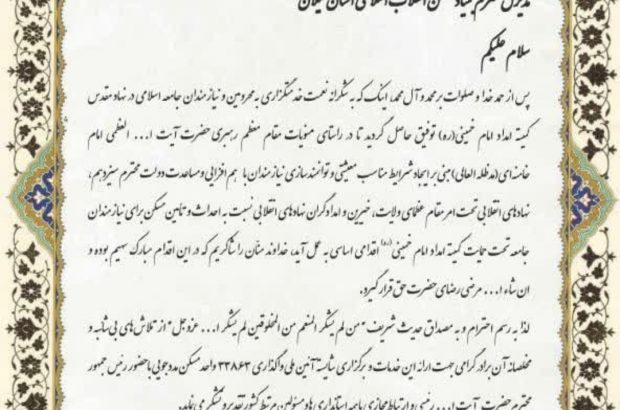 مدیرکل محترم بنیاد مسکن انقلاب اسلامی استان گیلان
سلام علیکم
پس از حمد خدا و صلوات بر محمد و آل محمد، اینک که به شکرانه نعمت خدمتگزاری به محرومین و نیازمندان جامعه اسلامی در نهاد مقدس
کمیته امداد امام خمینی(ره) توفیق حاصل گردید تا در راستای منویات مقام معظم رهبری حضرت آیت ا... العظمی امام
خامنه ای(مدظله العالی) مبنی بر ایجاد شرایط مناسب معیشتی و توانمندسازی نیازمندان با هم افزایی و مساعدت دولت محترم سیزدهم،
نهادهای انقلابی تحت امر مقام عظمای ولایت، خیرین و امدادگران نهادهای انقلابی نسبت به احداث و تأمین مسکن برای نیازمندان
جامعه تحت حمایت کمیته امداد امام خمینی(ره) اقدامی اساسی به عمل آید، خداوند منّان را شاکریم که در این اقدام مبارک سهیم بوده و
ان شاء ا... مرضی رضای حضرت حق قرار گیرد.
لذا به رسم احترام و به مصداق حدیث شریف "من لم یشکر المنعم من المخلوقین لم یشکر ا... عزوجل" از تلاش های بی شائبه و
مخلصانه آن برادر گرامی جهت ارائه این خدمات و برگزاری شایسته آئین ملی واگذاری ۳۳۸۶۳ واحد مسکن مددجویی با حضور رئیس جمهور
محترم حضرت آیت ا... رئیسی و ارتباط مجازی با همه استانداری ها و مسئولین مرتبط کشور تقدیر و تشکر می نماید.